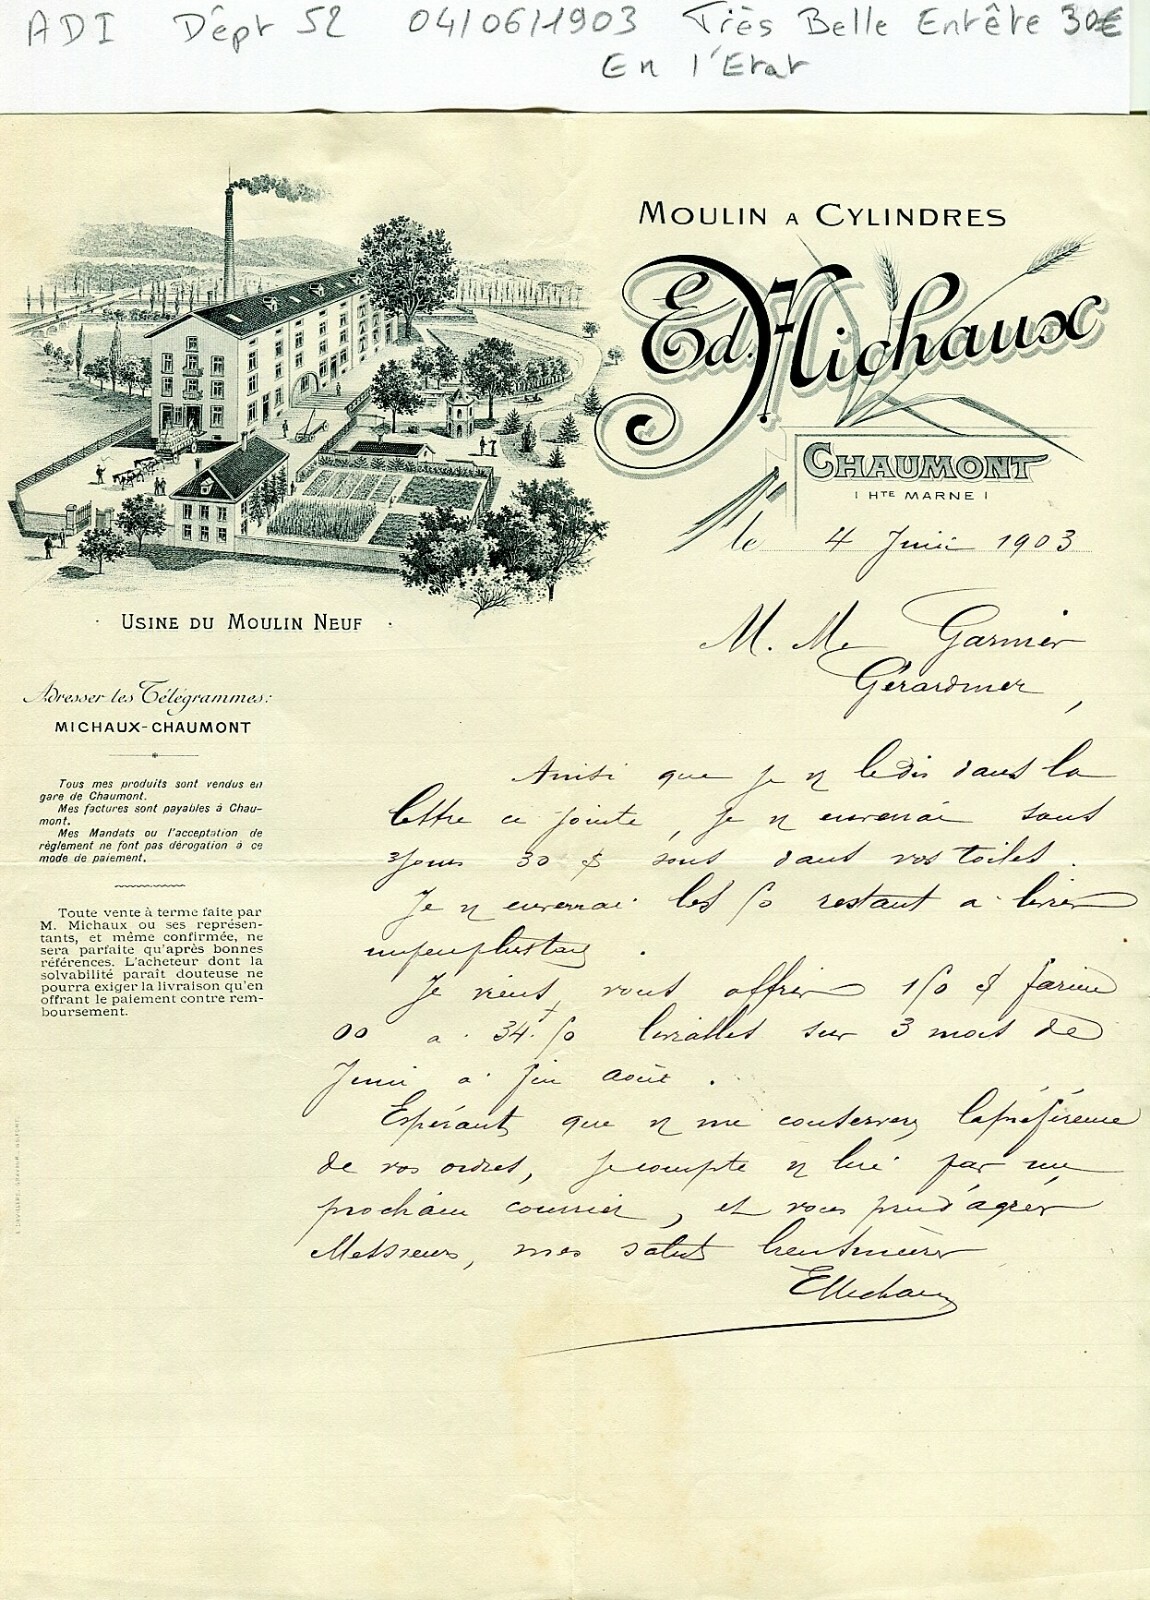 ADI Dépt 52 04/06/1903 Très Belle Entête 30€
En l'Etat
MOULIN A CYLINDRES
Ed. Michaux
CHAUMONT
HTE MARNE
le 4 Juin 1903
USINE DU MOULIN NEUF
M. Me Garnier
Gérardmer,
Adresser les Télégrammes:
MICHAUX-CHAUMONT
Tous mes produits sont vendus en
gare de Chaumont.
Mes factures sont payables à Chau-
mont.
Mes Mandats ou l'acceptation de
règlement ne font pas dérogation à ce
mode de paiement.
Toute vente à terme faite par
M. Michaux ou ses représen-
tants, et même confirmée, ne
sera parfaite qu'après bonnes
références. L'acheteur dont la
solvabilité paraît douteuse ne
pourra exiger la livraison qu'en
offrant le paiement contre rem-
boursement.
Ainsi que je v ledis dans la
lettre ci jointe, je v enverrai sous
3 jours 30 dans vos toiles.
Je v enverrai les 50 restant a livrer
unpeuplustard.
Je viens vous offrir 150 farine
00 a 34 50 livrables sur 3 mois de
Juin a fin août.
Espérant que v me conserverez lapréférence
de vos ordres, jecompte v lire par un
prochain courrier, et vous prie d'agréer
Messieurs, mes salut
EMichaux